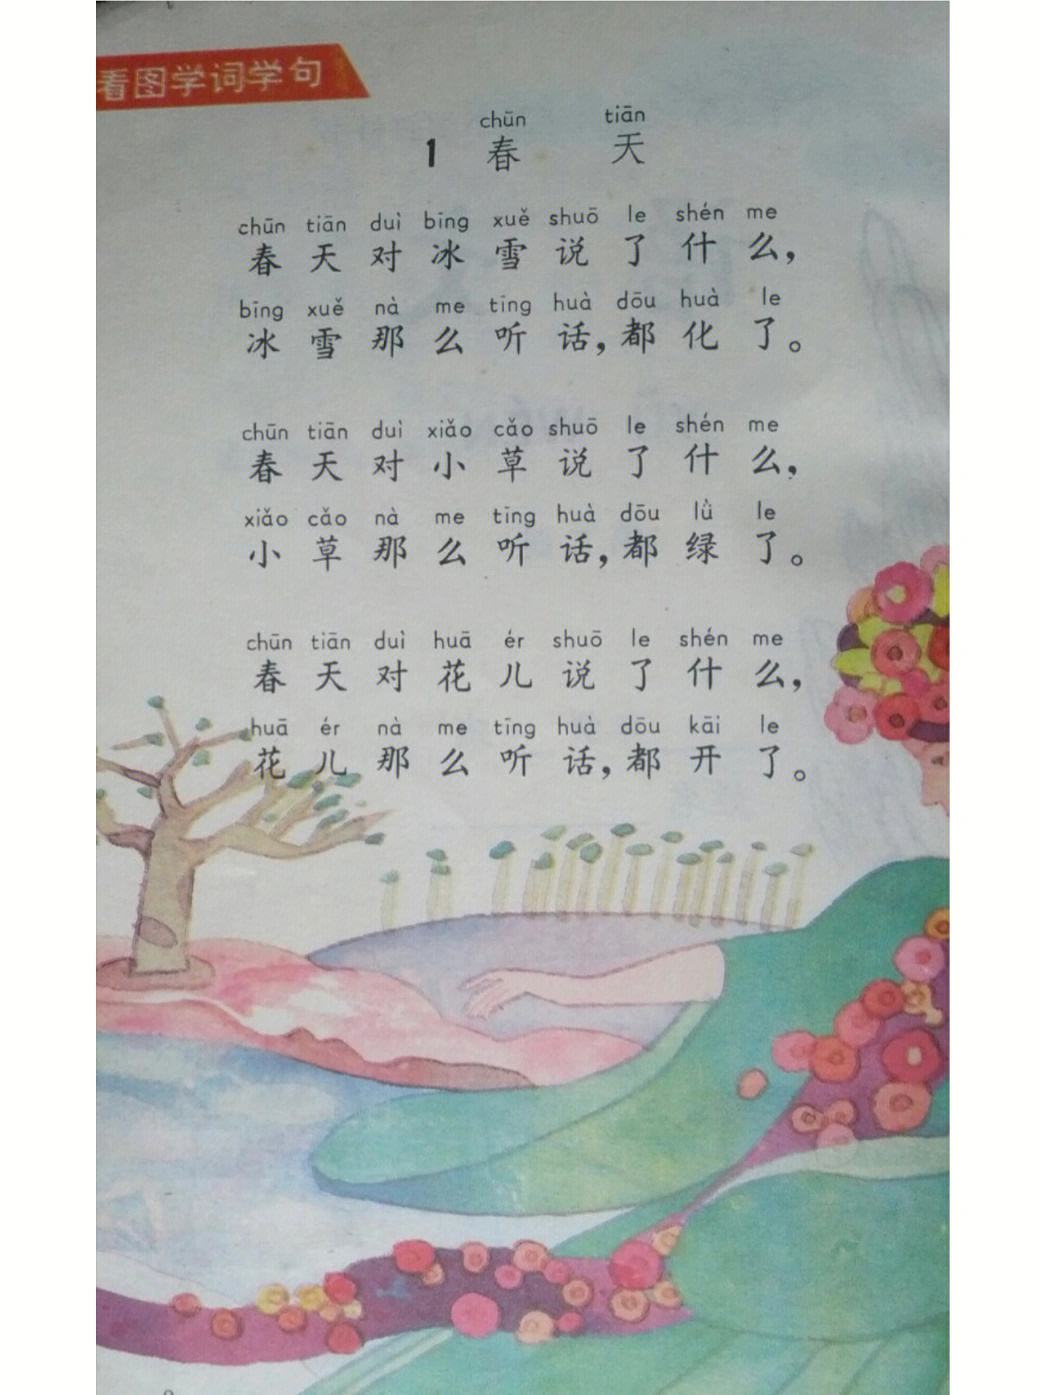 看图学词学句
chūn tiān
1 春 天
chūn tiān duì bīng xuě shuō le shén me
春 天 对 冰 雪 说 了 什 么，
bīng xuě nà me tīng huà dōu huà le
冰 雪 那 么 听 话，都 化 了。
chūn tiān duì xiǎo cǎo shuō le shén me
春 天 对 小 草 说 了 什 么，
xiǎo cǎo nà me tīng huà dōu lǜ le
小 草 那 么 听 话，都 绿 了。
chūn tiān duì huā ér shuō le shén me
春 天 对 花 儿 说 了 什 么，
huā ér nà me tīng huà dōu kāi le
花 儿 那 么 听 话，都 开 了。